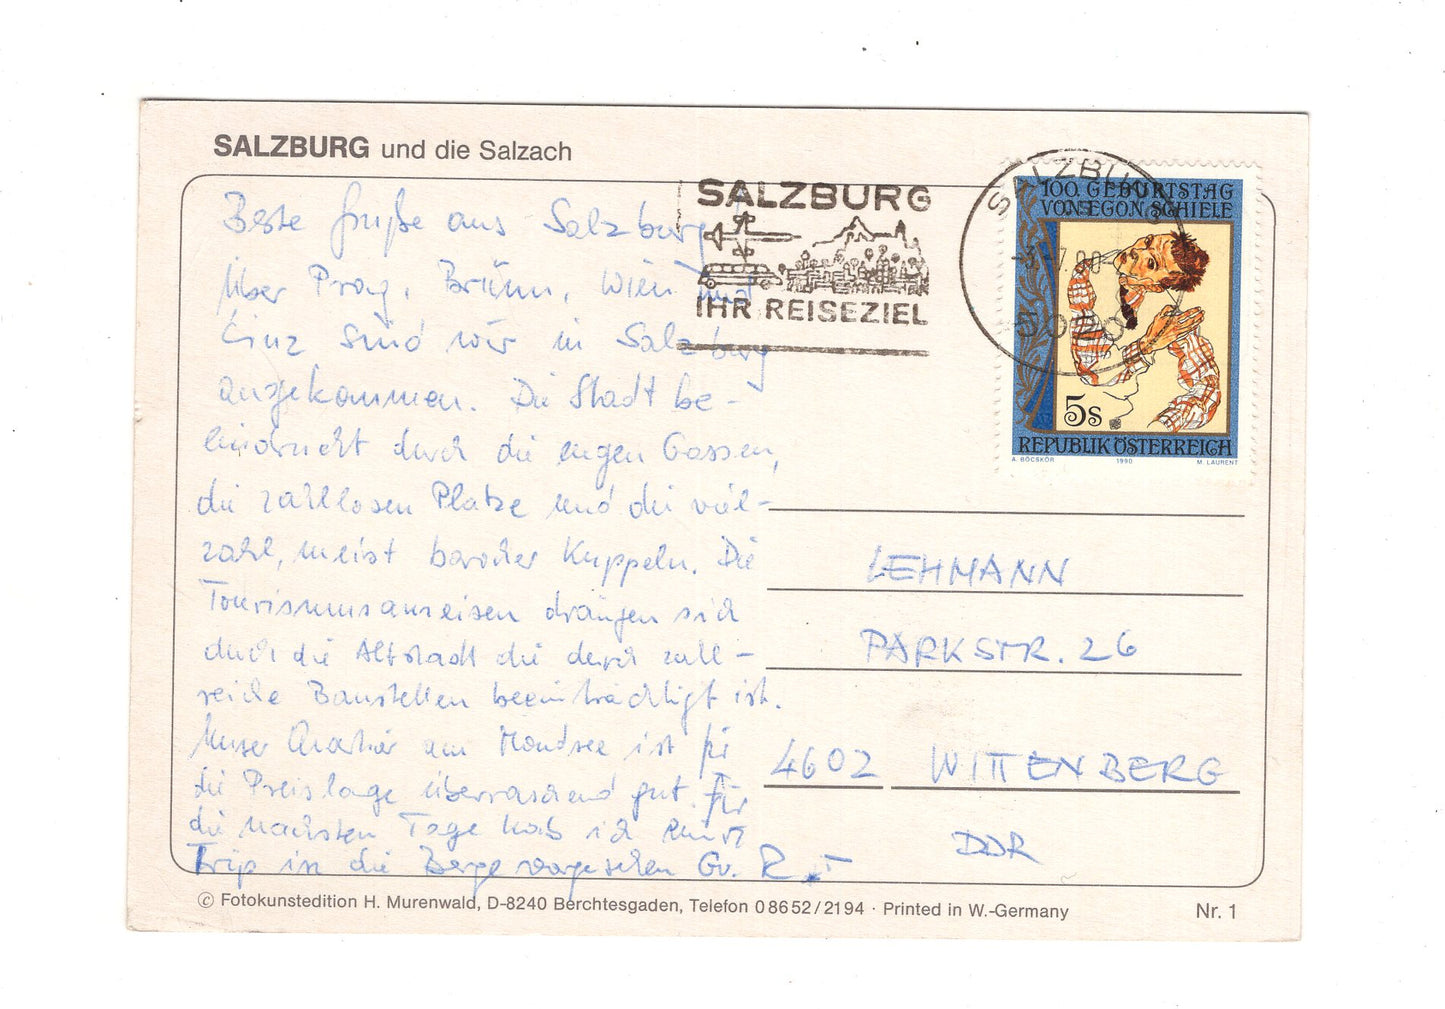 SALZBURG und die Salzach
Beste Grüße aus Salzburg
Über Prag, Brünn, Wien und
Linz sind wir in Salzburg
angekommen. Die Stadt be-
eindruckt durch die engen Gassen,
die zahllosen Plätze und die viel-
zahl, meist barocker Kuppeln. Die
Tourismusanreisen drängen sich
durch die Altstadt die durch zahl-
reiche Baustellen beeinträchtigt ist.
Unser Quartier am Mondsee ist für
die Preislage überraschend gut. Für
die nächsten Tage hab ich einen
Trip in die Berge vorgesehen Gr. R.
SALZBURG
IHR REISEZIEL
SALZBURG
-3.-7.90-
5020
100. GEBURTSTAG
VON EGON SCHIELE
5s
REPUBLIK ÖSTERREICH
A. BÖCSKÖR 1990 M. LAURENT
LEHMANN
PARKSTR. 26
4602 WITTENBERG
DDR
© Fotokunstedition H. Murenwald, D-8240 Berchtesgaden, Telefon 08652/2194 · Printed in W.-Germany Nr. 1